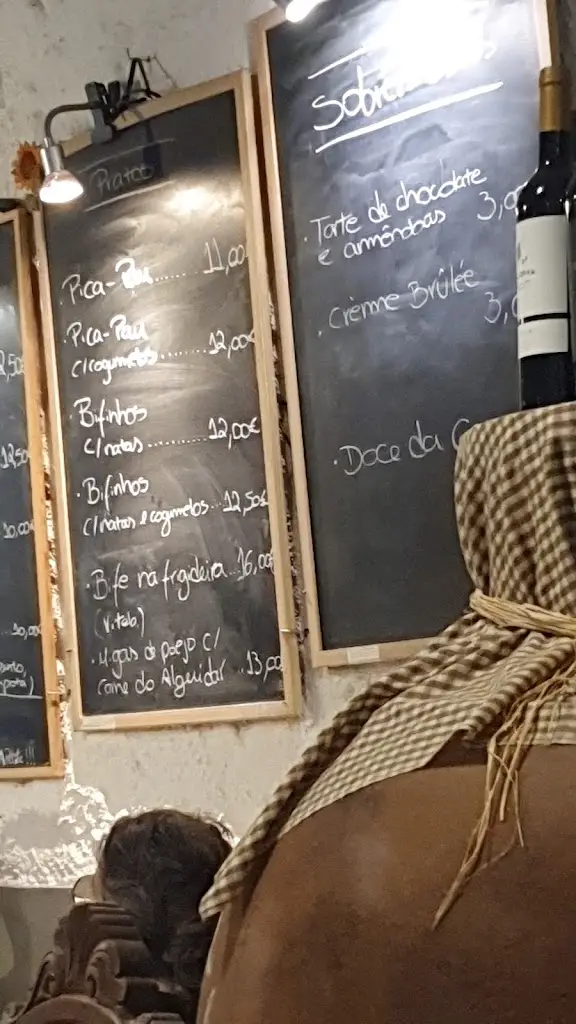 2,50€
12,50€
10,00€
10,00€
Pratos
· Pica-Pau...... 11,00
· Pica-Pau
c/cogumelos....... 12,00€
· Bifinhos
c/natas ......... 12,00€
· Bifinhos
c/natas e cogumelos... 12,50€
· Bife na frigideira... 16,00€
(vitela)
· Migas de poejo c/
Carne do Alguidar ..13,00
· Torte de chocolate
e amêndoas 3,0
· Crème Brûlée
3,0
· Doce da